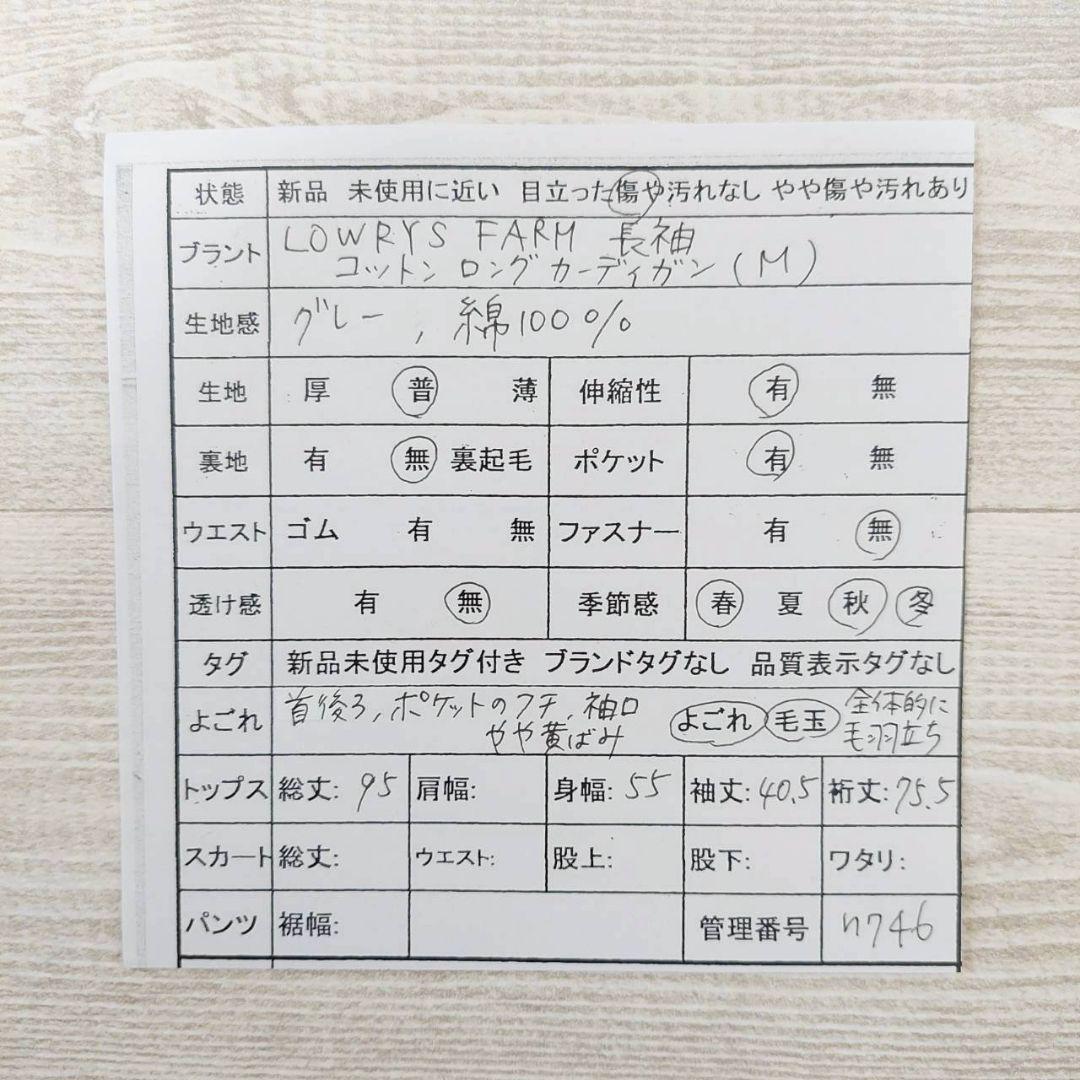 状態 新品 未使用に近い 目立った傷や汚れなし やや傷や汚れあり
ブラント LOWRYS FARM 長袖
コットン ロング カーディガン (M)
生地感 グレー , 綿100%
生地 厚 普 薄 伸縮性 有 無
裏地 有 無 裏起毛 ポケット 有 無
ウエスト ゴム 有 無 ファスナー 有 無
透け感 有 無 季節感 春 夏 秋 冬
タグ 新品未使用タグ付き ブランドタグなし 品質表示タグなし
よごれ 首後ろ, ポケットのフチ, 袖口 よごれ 毛玉 全体的に
やや黄ばみ 毛羽立ち
トップス 総丈: 95 肩幅: 身幅: 55 袖丈: 40.5 裄丈: 75.5
スカート 総丈: ウエスト: 股上: 股下: ワタリ:
パンツ 裾幅: 管理番号 n746